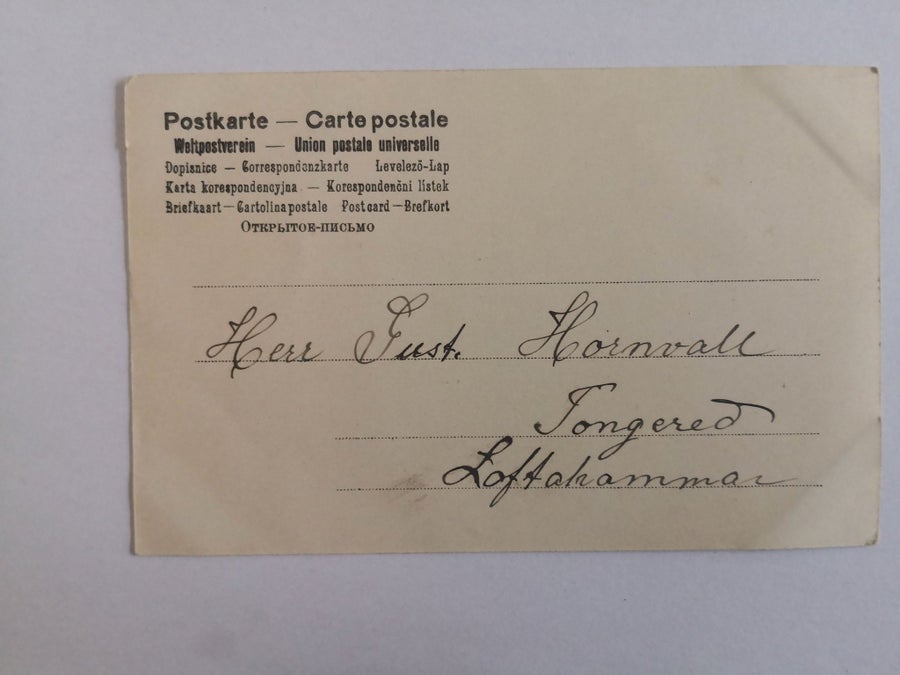 Postkarte — Carte postale
Weltpostverein — Union postale universelle
Dopisnice — Correspondenzkarte Levelező-Lap
Karta korespondencyjna — Korespondenční lístek
Briefkaart — Cartolina postale Postcard — Brefkort
Открытое-письмо
Herr Gust. Hornvall
Tongered
Loftahammar